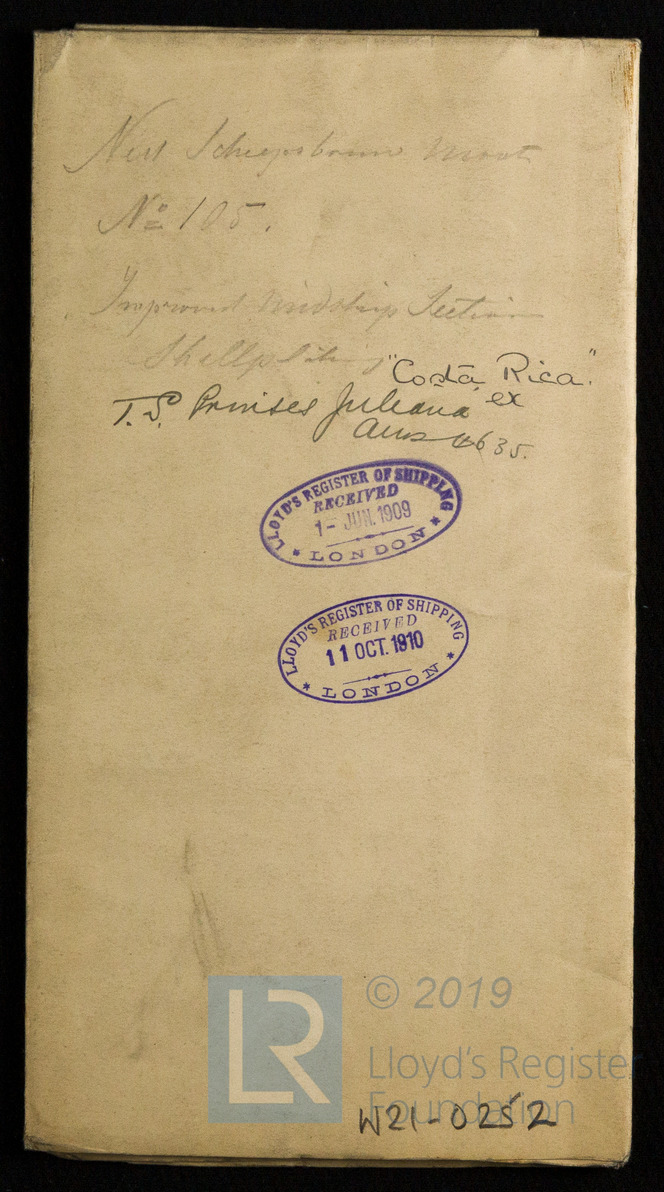 Ned Scheepsbouw Maat
No 105.
Improved Midship Section
Shellplating
"Costa Rica"
ex
T.S. Prinses Juliana
Ams 4635.
LLOYD'S REGISTER OF SHIPPING
RECEIVED
1- JUN. 1909
* LONDON *
LLOYD'S REGISTER OF SHIPPING
RECEIVED
11 OCT. 1910
* LONDON *
LR
© 2019
Lloyd's Register
Foundation
W21-0252